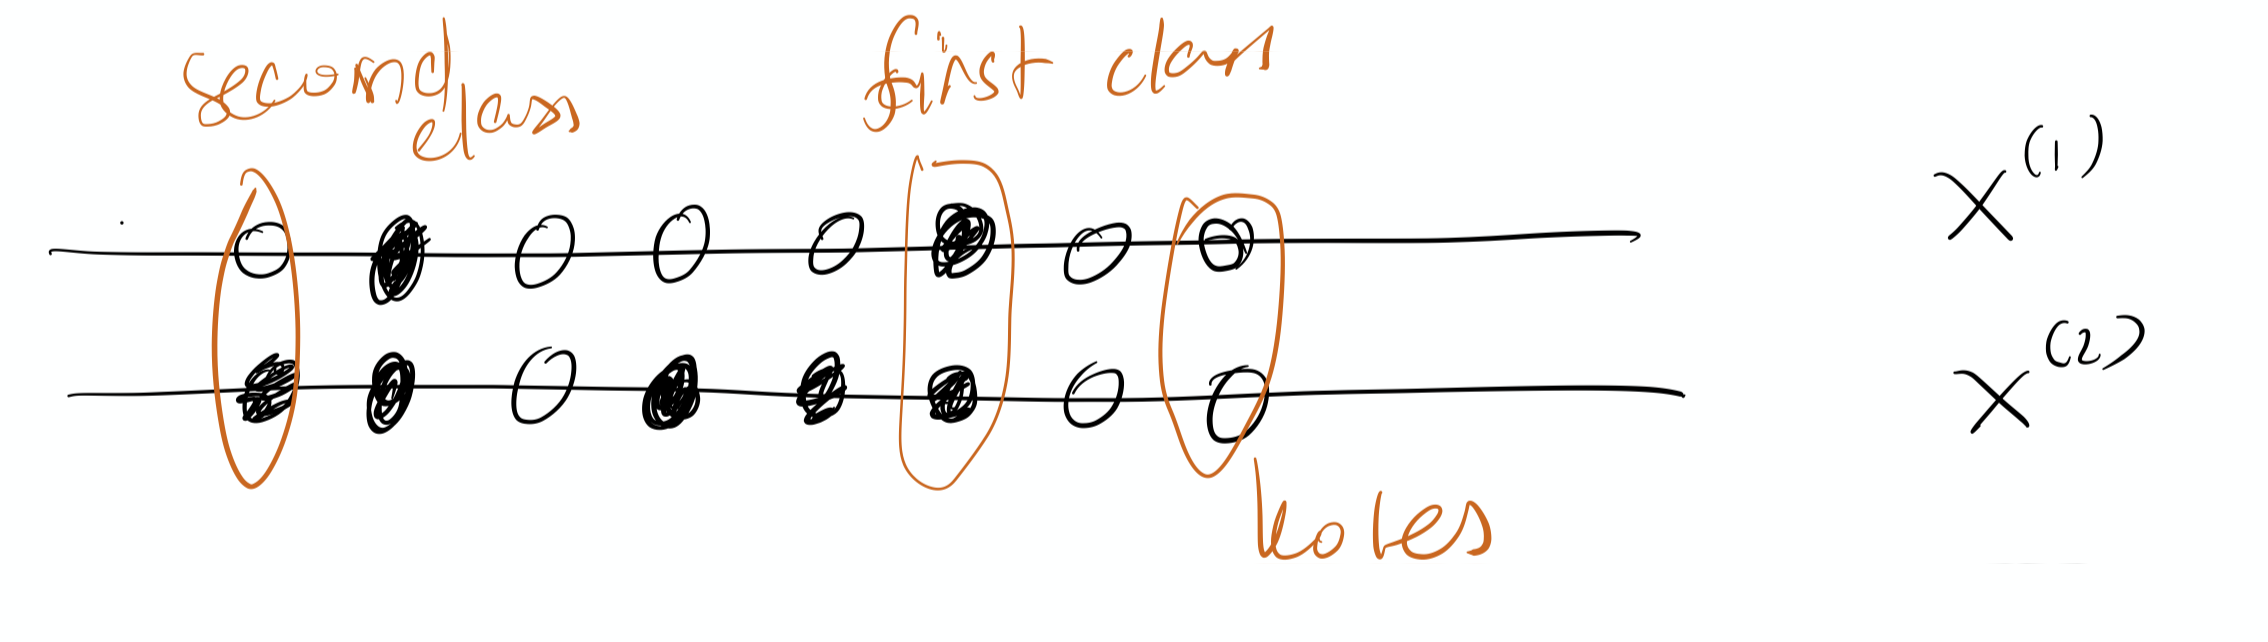 second class
first class
X^(1)
X^(2)
holes